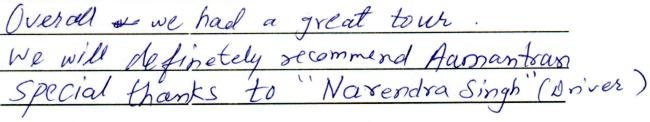 Overall we had a great tour.
We will definetely recommend Aamantran
Special thanks to "Narendra Singh" (Driver)